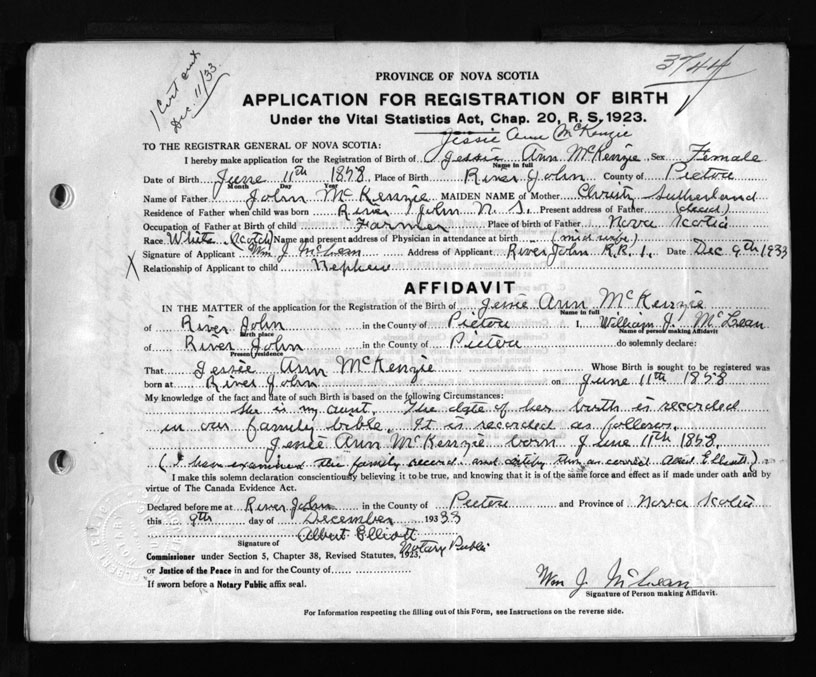 1 Cert sent
Dec. 11/33
3744
PROVINCE OF NOVA SCOTIA
APPLICATION FOR REGISTRATION OF BIRTH
Under the Vital Statistics Act, Chap. 20, R. S. 1923.
Jessie Ann McKenzie
TO THE REGISTRAR GENERAL OF NOVA SCOTIA:
I hereby make application for the Registration of Birth of Jessie Ann McKenzie, Sex Female
Name in full
Date of Birth June 11th 1858 Place of Birth River John County of Pictou
Month Day Year
Name of Father John McKenzie MAIDEN NAME of Mother Christy Sutherland
Residence of Father when child was born River John N. S. Present address of Father (dead)
Occupation of Father at Birth of child Farmer Place of birth of Father Nova Scotia
Race White (Scotch) Name and present address of Physician in attendance at birth (mid wife)
Signature of Applicant Wm J. McLean Address of Applicant River John R.R. 1. Date Dec 9th 1933
X Relationship of Applicant to child Nephew
AFFIDAVIT
IN THE MATTER of the application for the Registration of the Birth of Jessie Ann McKenzie
Name in full
of River John in the County of Pictou I, William J. McLean
Birth place Name of person making Affidavit
of River John in the County of Pictou do solemnly declare:
Present residence
That Jessie Ann McKenzie Whose Birth is sought to be registered was
born at River John on June 11th 1858
My knowledge of the fact and date of such Birth is based on the following Circumstances:
She is my aunt. The date of her birth is recorded
in our family bible. It is recorded as follows.
Jessie Ann McKenzie born June 11th 1858.
(I have examined the family record and certify this as correct Albert Elliott)
I make this solemn declaration conscientiously believing it to be true, and knowing that it is of the same force and effect as if made under oath and by
virtue of The Canada Evidence Act.
Declared before me at River John in the County of Pictou and Province of Nova Scotia
this 9th day of December 1933
Albert Elliott
Signature of Notary Public
Commissioner under Section 5, Chapter 38, Revised Statutes, 1923,
or Justice of the Peace in and for the County of
If sworn before a Notary Public affix seal.
Wm J. McLean
Signature of Person making Affidavit.
For Information respecting the filling out of this Form, see Instructions on the reverse side.